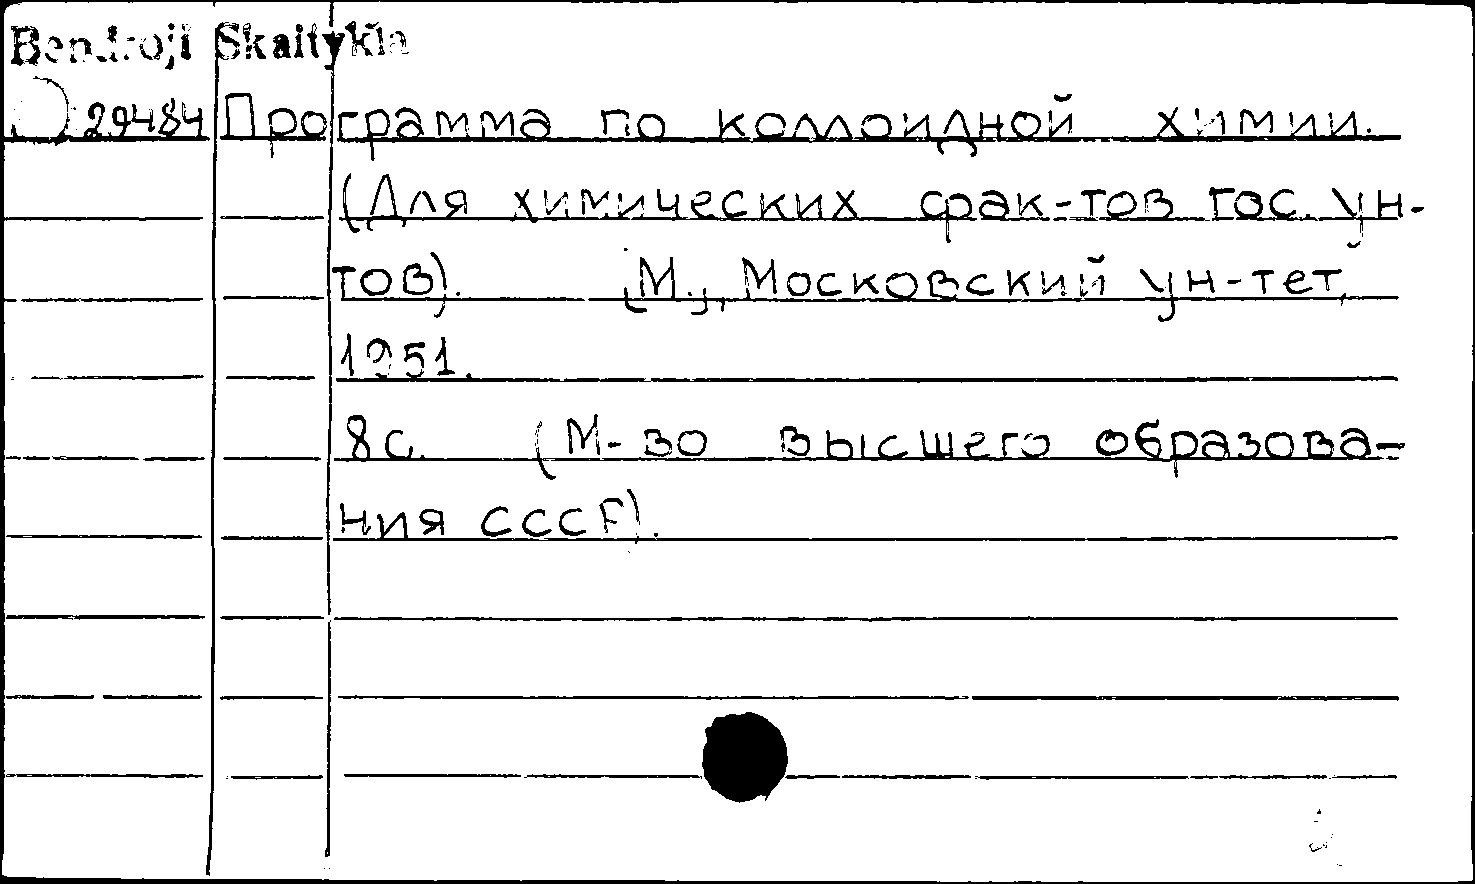 Bendroji Skaitykla
D 29484 Программа по коллоидной химии.
(Для химических фак-тов гос. ун-
тов). [М.], Московский ун-тет,
1951.
8 с. (М-во высшего образова-
ния СССР).